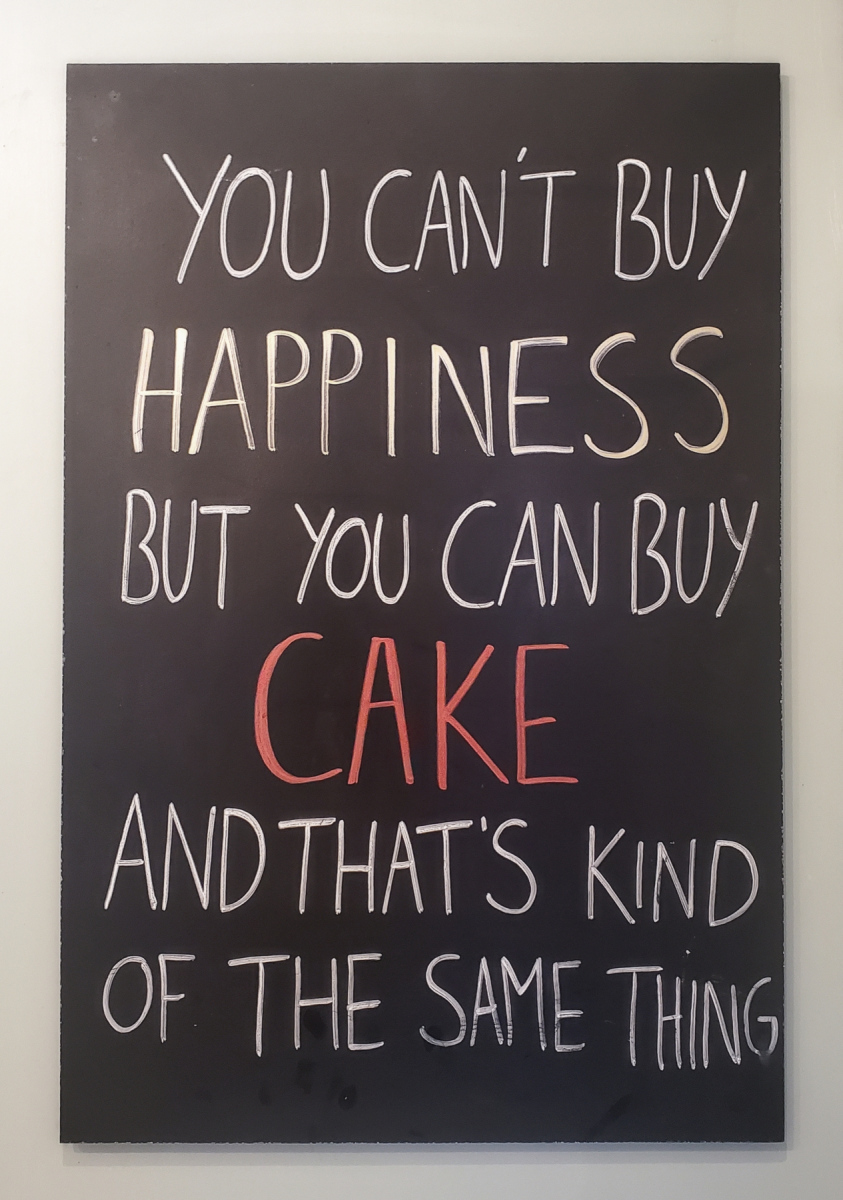 YOU CAN'T BUY
HAPPINESS
BUT YOU CAN BUY
CAKE
AND THAT'S KIND
OF THE SAME THING